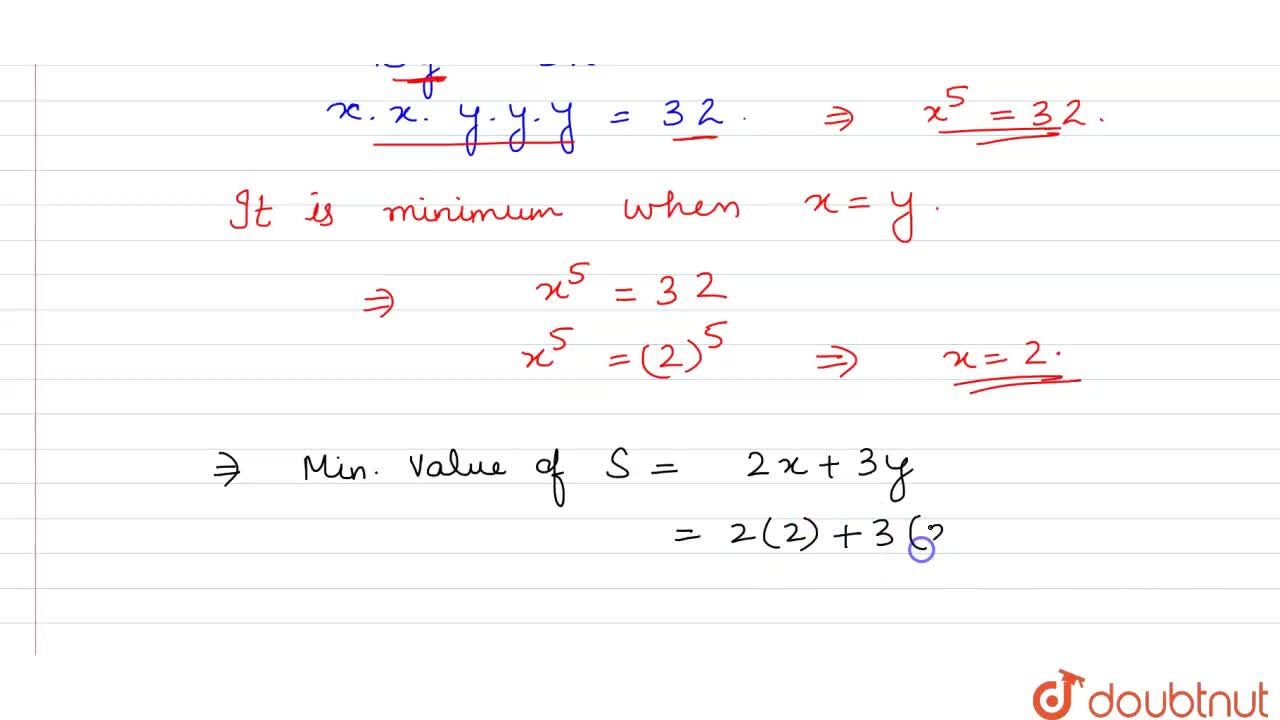 x.x. y.y.y = 32. ⇒ x⁵ = 32.
It is minimum when x = y.
⇒ x⁵ = 32
x⁵ = (2)⁵ ⇒ x = 2.
⇒ Min. Value of S = 2x + 3y
= 2(2) + 3(
doubtnut